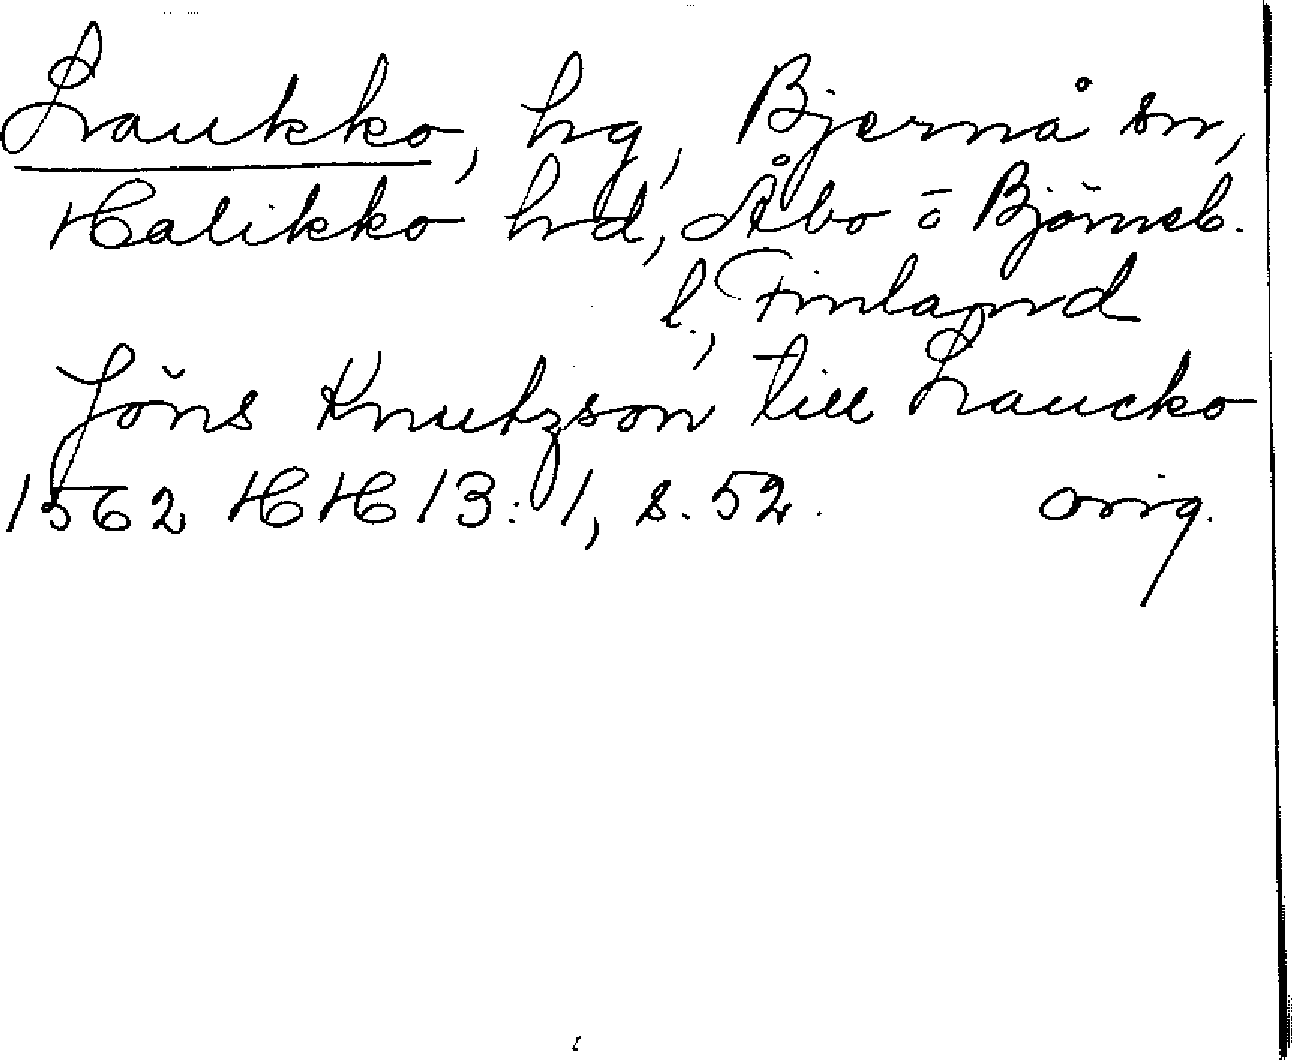 Laukko, hg, Bjernå sn,
Halikko hd, Åbo o Björneb.
l., Finland
Jöns Knutzson till Laucko
1562 HH 13:1, s. 52. orig.